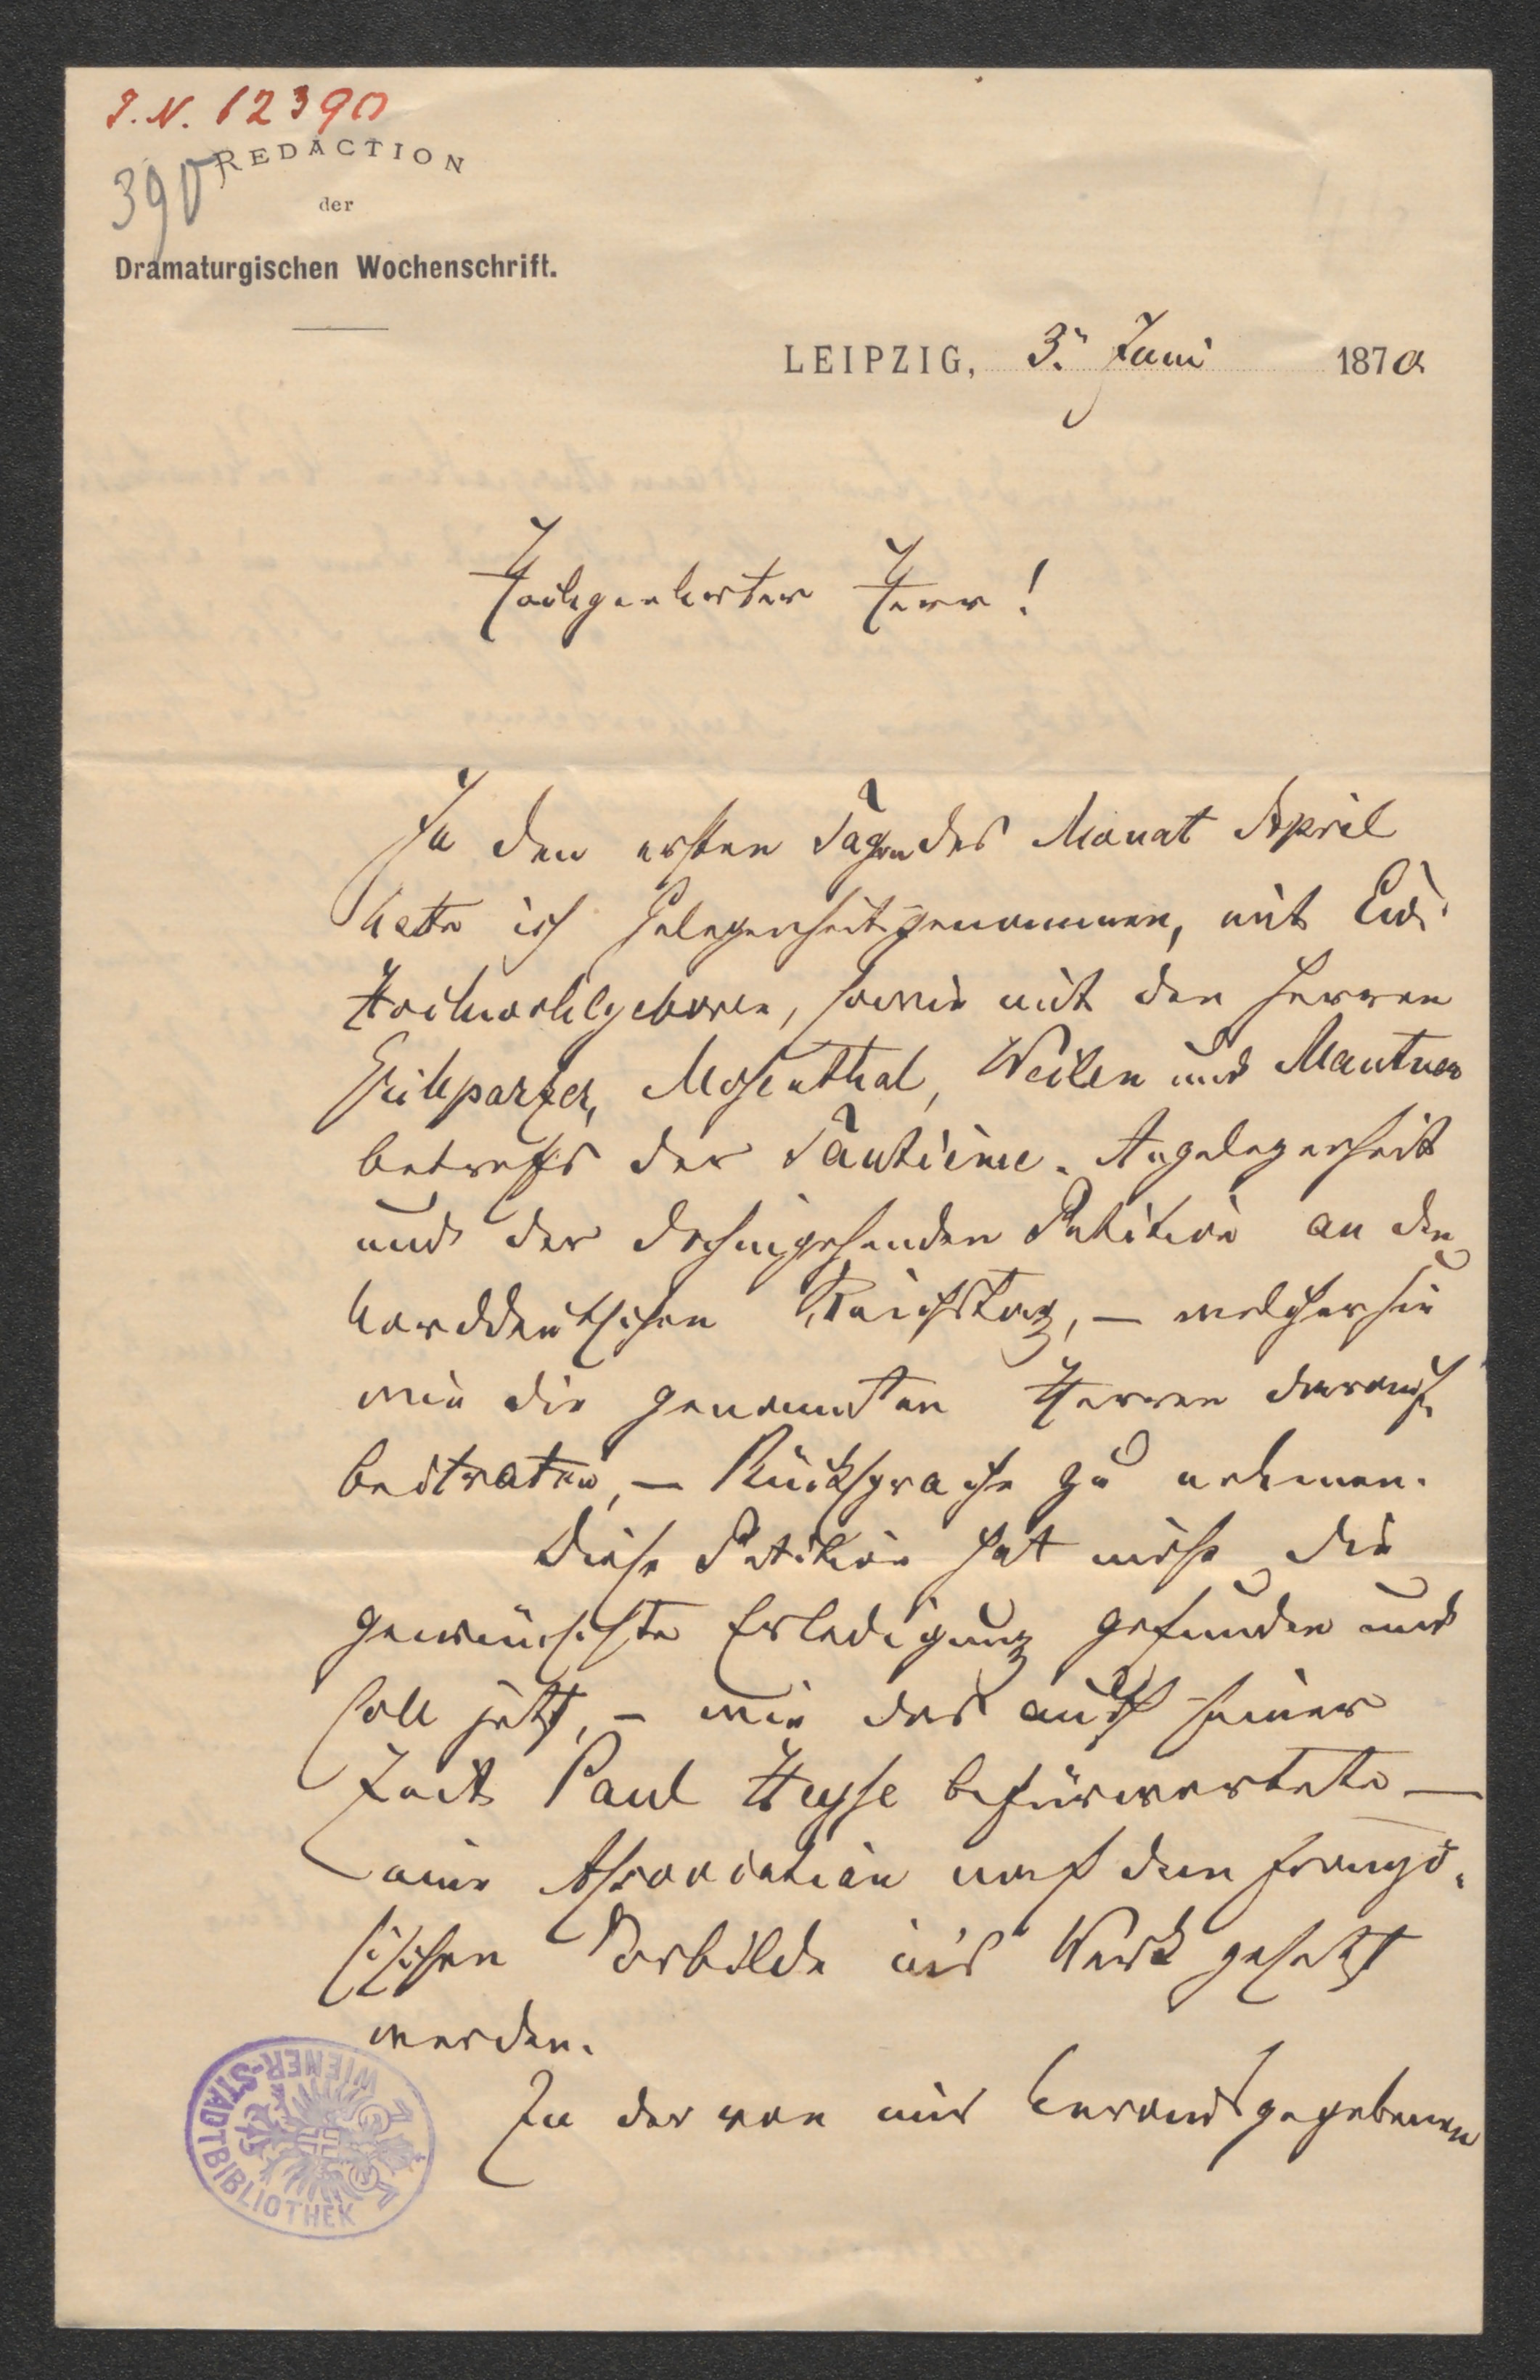 I. N. 62390
390
REDACTION
der
Dramaturgischen Wochenschrift.
LEIPZIG, 3. Juni 1870
Hochgeehrter Herr!
In den ersten Tagen des Monat April
hatte ich Gelegenheit genommen, mit Ew.
Hochwohlgeboren, sowie mit den Herren
Grillparzer, Mosenthal, Weilen und Mautner
betreffs der Tantième-Angelegenheit
und der dahingehenden Petition an den
norddeutschen Reichstag, – welcher Sie
wie die genannten Herren darauf
beitraten, – Rücksprache zu nehmen.
Diese Petition hat nicht die
gewünschte Erledigung gefunden und
soll jetzt, – wie das auch seiner
Zeit Paul Heyse befürwortete –
eine Association nach dem franzö-
sischen Vorbilde ins Werk gesetzt
werden.
In der von mir herausgegebenen
WIENER-STADTBIBLIOTHEK